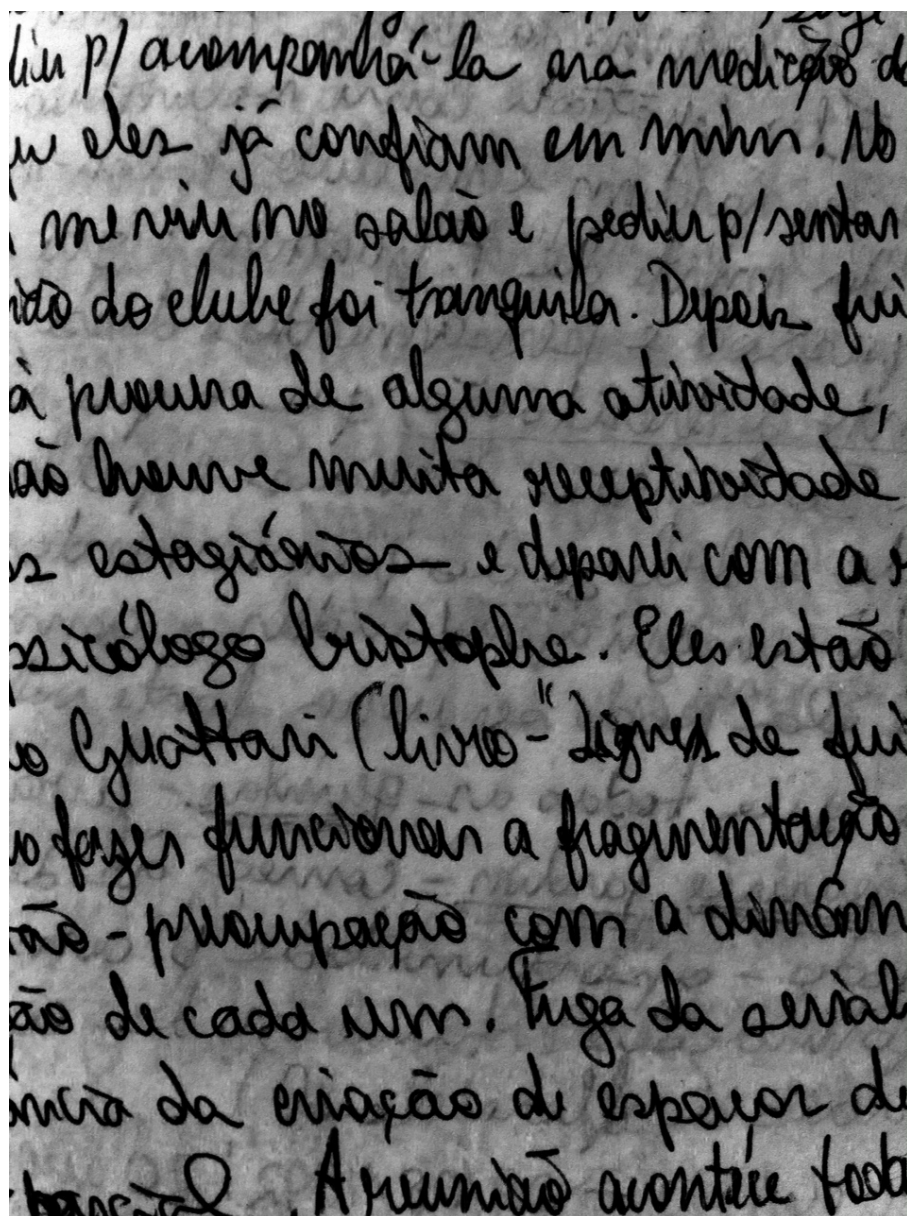 diu p/ acompanhá-la na medicação d
u eles já confiam em mim. No
me viu no salão e pediu p/ sentar
ião do clube foi tranquila. Depois fui
à procura de alguma atividade,
ão houve muita receptividade
s estagiários e deparei com a r
sicólogo Cristophe. Eles estão
o Guattari (livro - "Lignes de fui
o fazer funcionar a fragmentação
ão - preocupação com a dimen
ão de cada um. Fuga da serial
ância da criação de espaços de
. A reunião acontece toda